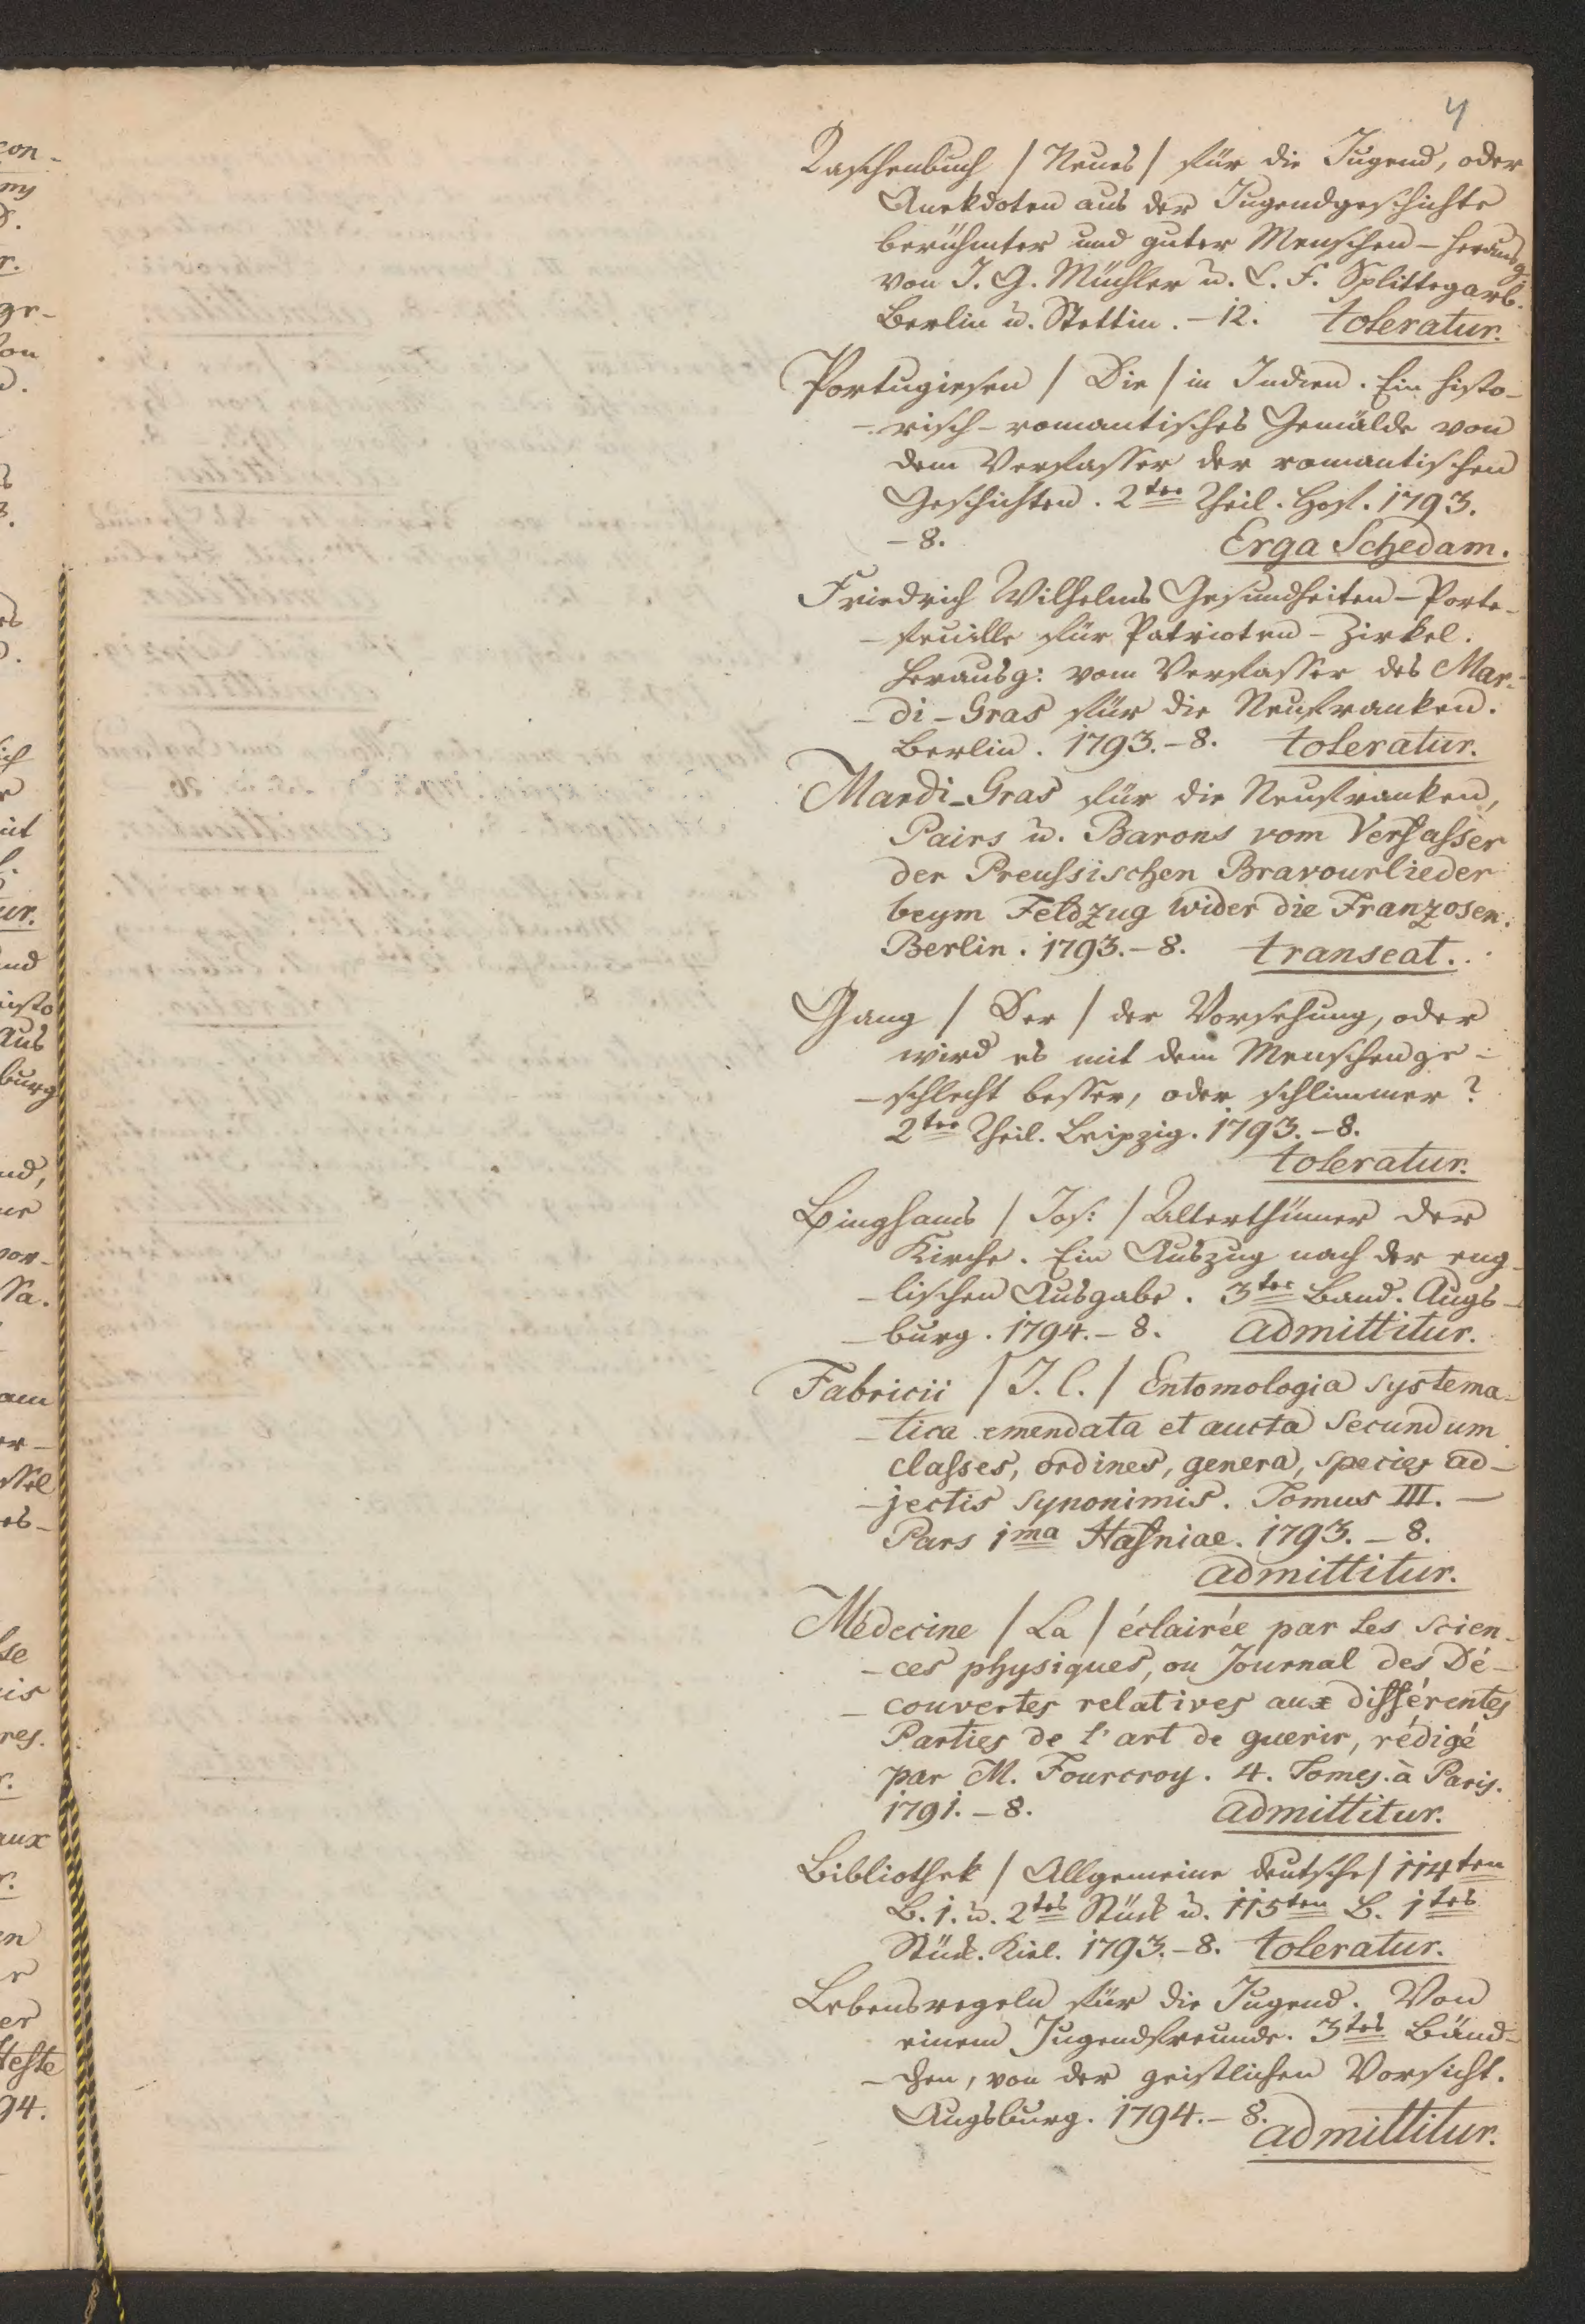 4
Taschenbuch / Neues / für die Jugend, oder
Anekdoten aus der Jugendgeschichte
berühmter und guter Menschen – herausg.
von J. G. Müchler u. C. F. Splittegarb.
Berlin u. Stettin. – 12. toleratur.
Portugiesen / Die / in Indien. Ein histo-
- risch-romantisches Gemälde von
dem Verfasser der romantischen
Geschichten. 2ter Theil. Hof. 1793.
– 8. Erga Schedam.
Friedrich Wilhelms Gesundheiten-Porte-
- feuille für Patrioten-Zirkel.
Herausg: vom Verfasser des Mar-
- di-Gras für die Neufranken.
Berlin. 1793. – 8. toleratur.
Mardi-Gras für die Neufranken,
Pairs u. Barons vom Verfasser
der Preussischen Bravourlieder
beym Feldzug wider die Franzosen.
Berlin. 1793. – 8. transeat.
Gang / Der / der Vorsehung, oder
wird es mit dem Menschenge-
- schlecht besser, oder schlimmer?
2ter Theil. Leipzig. 1793. – 8.
toleratur.
Binghams / Jos: / Alterthümer der
Kirche. Ein Auszug nach der eng-
- lischen Ausgabe. 3ter Band. Augs-
- burg. 1794. – 8. admittitur.
Fabricii / J. C. / Entomologia systema-
- tica emendata et aucta secundum
classes, ordines, genera, species ad-
- jectis synonimis. Tomus III. –
Pars 1ma Hafniae. 1793. – 8.
admittitur.
Médecine / La / éclairée par les scien-
- ces physiques, ou Journal des Dé-
- couvertes relatives aux différentes
Parties de l'art de guerir, rédigé
par M. Fourcroy. 4. Tomes. à Paris.
1791. – 8. admittitur.
Bibliothek / Allgemeine deutsche / 114ten
B. 1. u. 2tes Stück u. 115ten B. 1tes
Stück. Kiel. 1793. – 8. toleratur.
Lebensregeln für die Jugend. Von
einem Jugendfreunde. 3tes Bänd-
- chen, von der geistlichen Vorsicht.
Augsburg. 1794. – 8. admittitur.